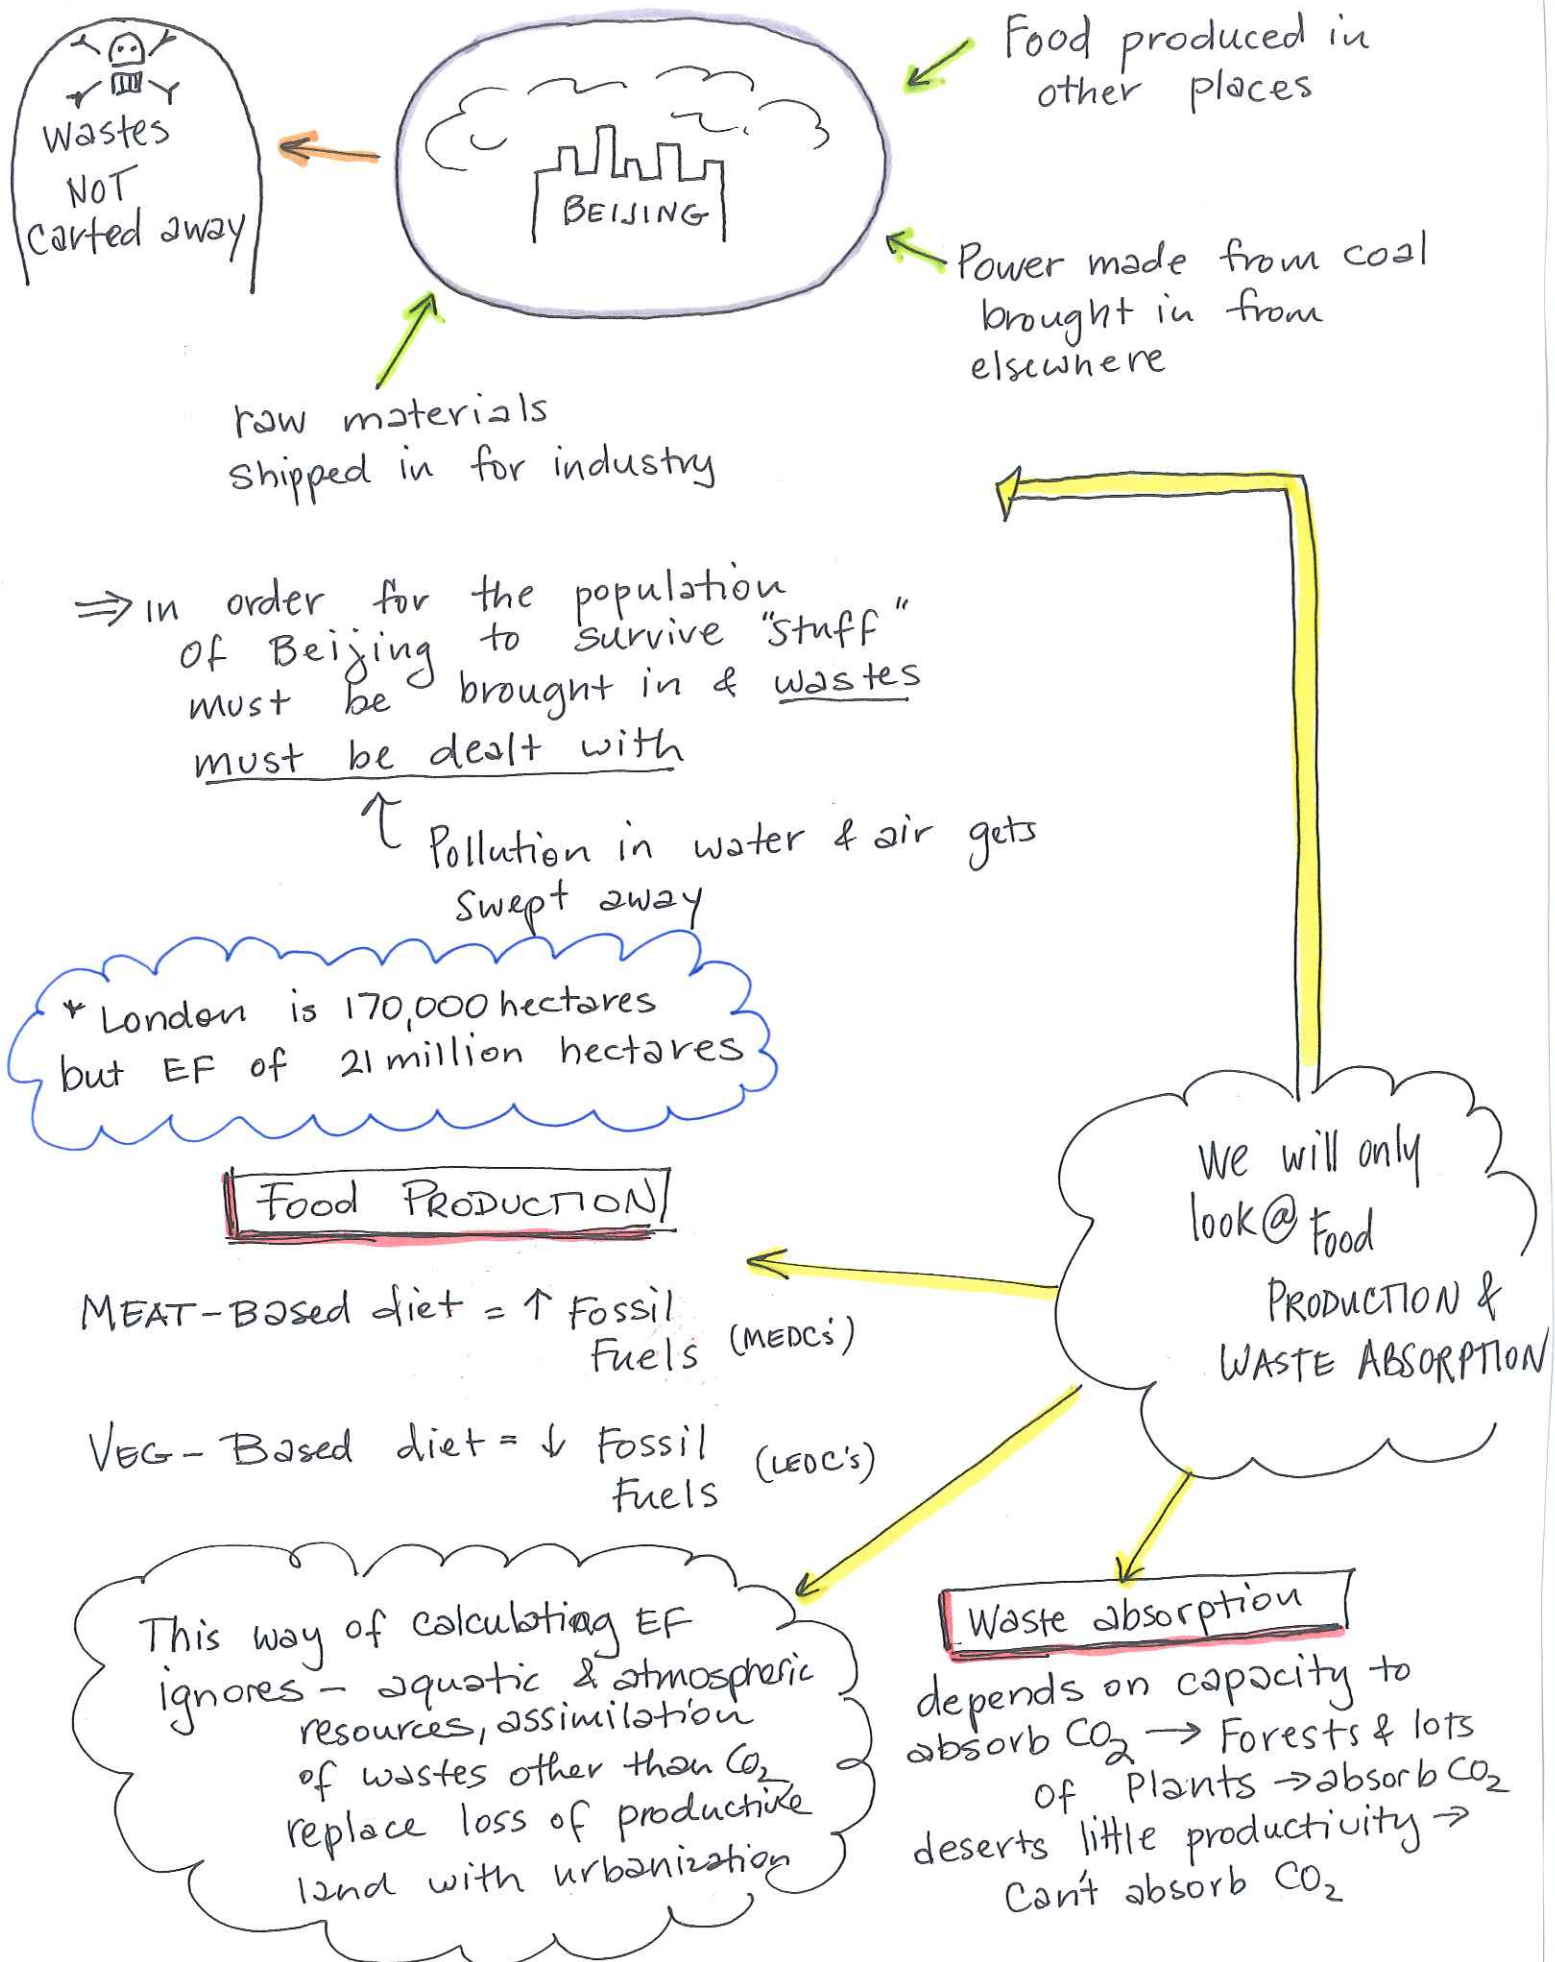 Wastes
NOT
carted away
BEIJING
Food produced in
other places
Power made from coal
brought in from
elsewhere
raw materials
shipped in for industry
⇒ in order for the population
of Beijing to survive "stuff"
must be brought in & wastes
must be dealt with
↑ Pollution in water & air gets
swept away
* London is 170,000 hectares
but EF of 21 million hectares
We will only
look @ Food
PRODUCTION &
WASTE ABSORPTION
Food PRODUCTION
MEAT-Based diet = ↑ Fossil
Fuels (MEDC's)
VEG-Based diet = ↓ Fossil
Fuels (LEDC's)
This way of calculating EF
ignores - aquatic & atmospheric
resources, assimilation
of wastes other than CO2
replace loss of productive
land with urbanization
Waste absorption
depends on capacity to
absorb CO2 → Forests & lots
of Plants → absorb CO2
deserts little productivity →
Can't absorb CO2